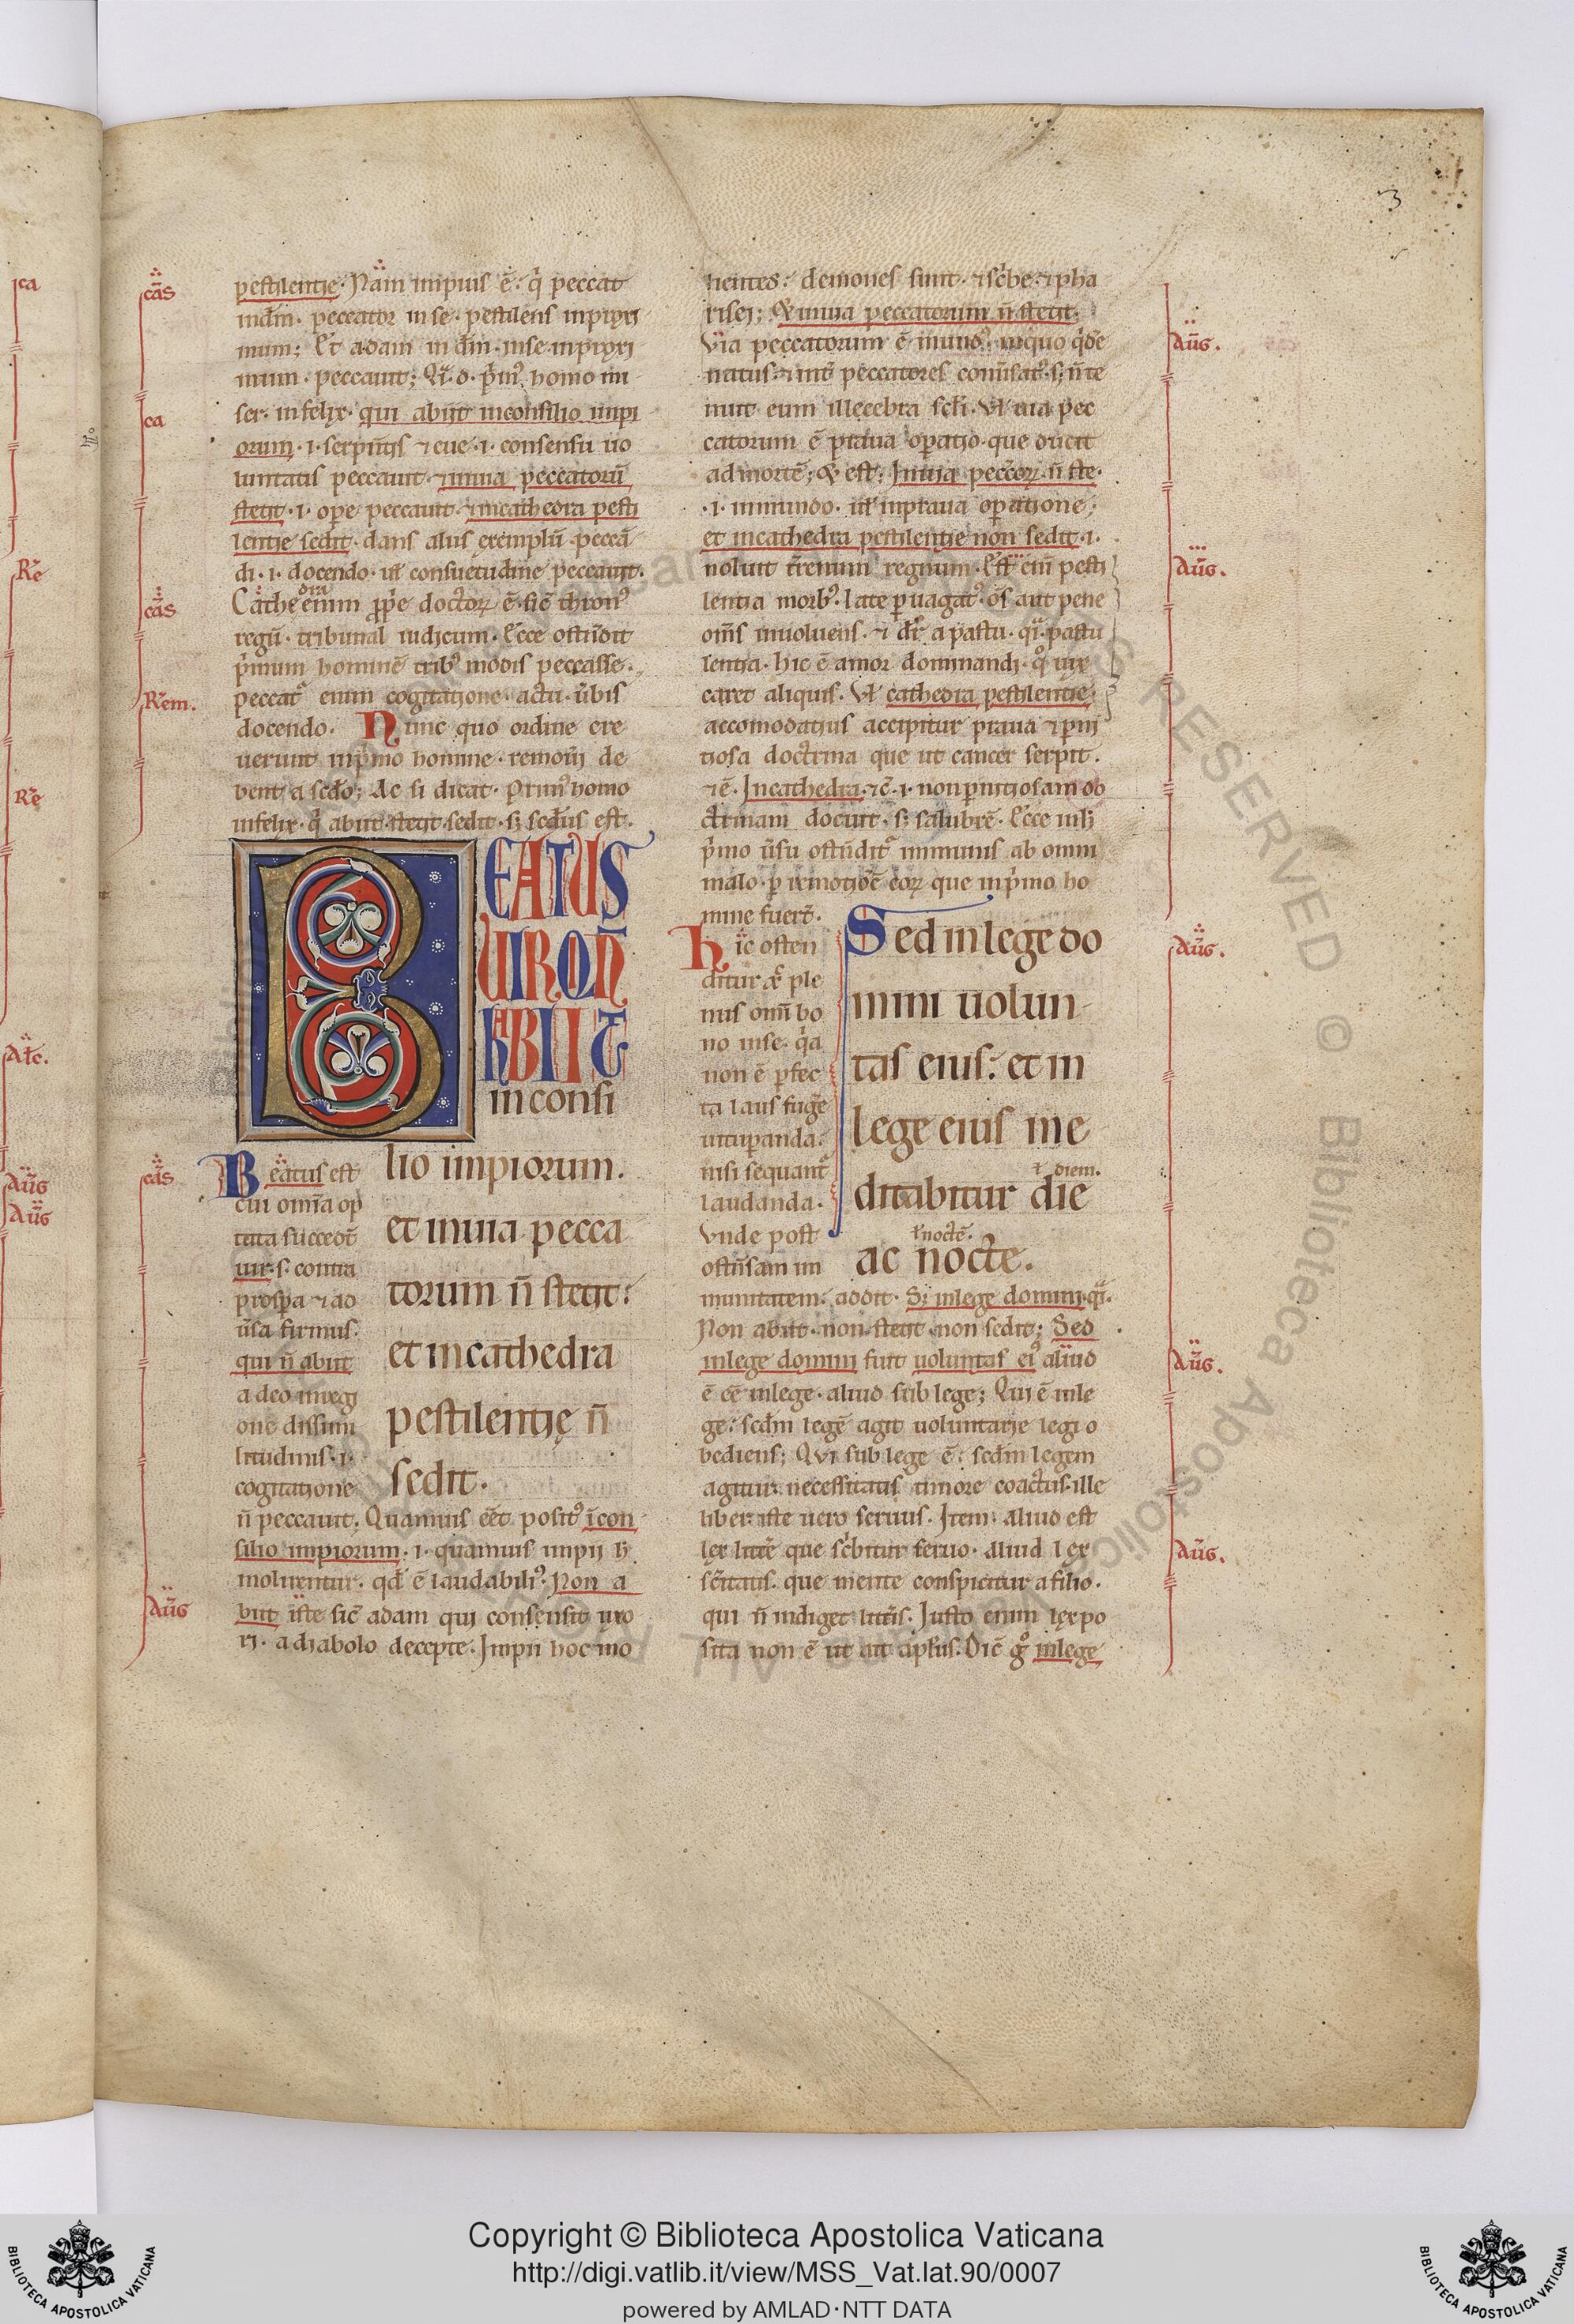 3
pestilentie. Nam impius ē. q̇ peccat
in dm̄. peccator in se. pestilens in proxi
mum; Et adam in dm̄. in se. in proxi
mum. peccauit; Q. d. p̄m᷒ homo mi
ser. infelix. qui abiit in consilio impi
orum .i. serpentis ⁊ eue .i. consensu uo
luntatis peccauit. ⁊ in uia peccatorū
stetit .i. ope peccauit. ⁊ in cathedra pesti
lentie sedit. dans aliis exemplū peccā
di .i. docendo. ul' consuetudine peccauit.
Cathedra enim pp̄e doctoꝝ ē. sic̄ thron᷒
regū. tribunal iudicum. Ecce ostn̄dit
p̄mum hominē trib᷒ modis peccasse.
peccat᷒ enim cogitatione. actu. ūbis
docendo. Nunc quo ordine cre
uerunt in p̄mo homine. remoueri de
bent a scd̄o; Ac si dicat. Primus homo
infelix. q̇ abiit. stetit. sedit. sꝫ scd̄us est.
BEATUS
UIR QN̄
ABIIT
in consi
lio impiorum.
et in uia pecca
torum n̄ stetit:
et in cathedra
pestilentię n̄
sedit.
Beatus est
cui omīa op
tata succedt̄
uir. s. contra
prospa ⁊ ad
ūsa firmus.
qui n̄ abiit
a deo in regi
onē dissimi
litudinis .i.
cogitatione
n̄ peccauit. Quamuis eēt posit᷒ ī con
silio impiorum .i. quamuis impii h̄
molirentur. qd̄ ē laudabili᷒. Non a
biit iste sic̄ adam qui consensit uxo
ri. a diabolo decepte. Impii hoc mo
nentes: demones sunt. ⁊ sc̄be. ⁊ pha
risei; Et in uia peccatorum n̄ stetit.
Via peccatorum ē mund᷒. in quo q̇dē
natus. ⁊ int̄ peccatores conūsat᷒. sꝫ n̄ te
nuit eum illecebra scl̄i. Vl' uia pec
catorum ē praua opatio. que ducit
ad mortē; Et est: In uia peccōꝝ n̄ ste.
.i. in mundo. ul' in praua opatione;
et in cathedra pestilentie non sedit .i.
noluit tr̄enum regnum. Est eīm pesti
lentia morb᷒. late puagat᷒. oēs aut pene
om̄s inuoluens. ⁊ dr̄ a pastu. q̄i. pastu
lentia. hic ē amor dominandi. q᷒ uix
caret aliquis. Vl' cathedra pestilentie.
accomodatius accipitur praua ⁊ pni
tiosa doctrina que ut cancer serpit.
⁊ ē. In cathedra. ⁊c̄ .i. non pnitiosam do
ctrinam docuit. sꝫ salubrē. Ecce in h̄
p̄mo ūsu ostn̄dit᷒ inmunis ab omni
malo. p remotiōē eoꝝ que in p̄mo ho
mine fuert̄.
Hic osten
ditur ple
nus omī bo
no in se. q̇a
non ē pfec
ta laus fuge
uitupanda.
nisi sequant᷒
laudanda.
Vnde post
ostn̄sam im
Sed in lege do
mini uolun
tas eius: et in
lege eius me
ditabitur die
ł diem.
ac nocte.
ł noctē.
munitatem: addit. Sꝫ in lege domini. q̄.
Non abiit. non stetit. non sedit; Sed
in lege domini fuit uoluntas ei᷒ aliud
ē eē in lege. aliud sub lege; Qui ē in le
ge: scd̄m legē agit uoluntarie legi o
bediens; Qui sub lege ē: scd̄m legem
agitur. necessitatis timore coactus. ille
liber. iste uero seruus. Item. Aliud est
lex litte que sc̄bitur seruo. aliud lex
ūitatis. que mente conspicitur a filio.
qui n̄ indiget litt̄is. Justo enim lex po
sita non ē ut ait apl̄us. Diē g᷒ in lege
cas
ca
cas
Rem.
cas
Aug
Aug.
Aug.
Aug.
Aug.
Aug.
ca
Re
Re
Alc.
Aug
Aug
Copyright © Biblioteca Apostolica Vaticana
http://digi.vatlib.it/view/MSS_Vat.lat.90/0007
powered by AMLAD·NTT DATA
BIBLIOTECA APOSTOLICA VATICANA
BIBLIOTECA APOSTOLICA VATICANA